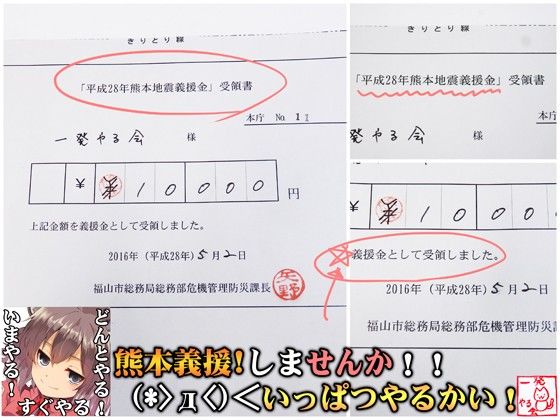 きりとり線
「平成28年熊本地震義援金」受領書
本庁 No. 11
一発やる会 様
¥ 10000 円
上記金額を義援金として受領しました。
2016年(平成28年)5月2日
福山市総務局総務部危機管理防災課長
矢野
きりとり線
「平成28年熊本地震義援金」受領書
本庁
一発やる会 様
¥ 1000
義援金として受領しました。
2016年(平成28年)5月2日
福山市総務局総務部危機管理防災課長
どんとやる!
いまやる!
すぐやる
熊本義援!しませんか!!
(*>д<)<いっぱつやるかい!
一発やる